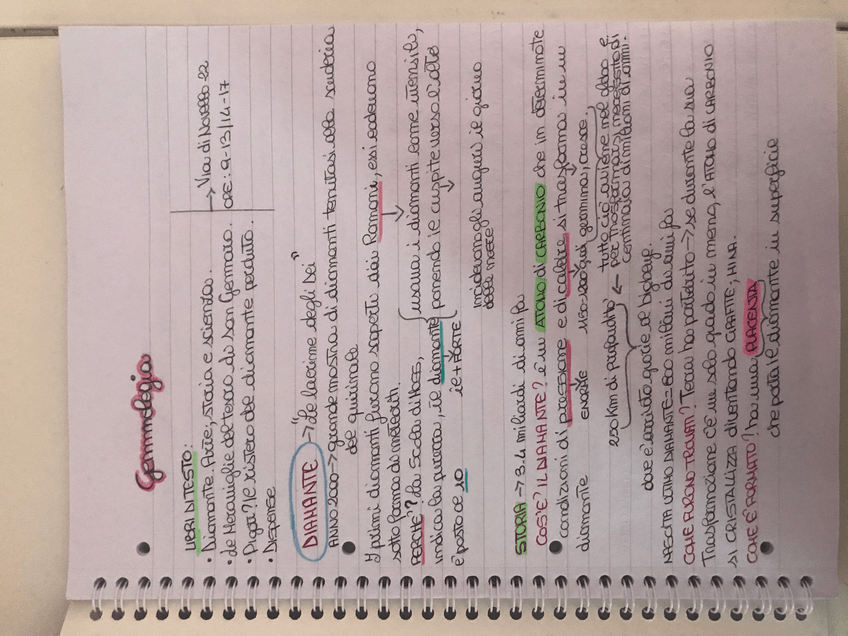 Gemmologia
LIBRI DI TESTO:
• Diamante. Arte, storia e scienza.
• Le Meraviglie del tesoro di San Gennaro.
• Pigot? Il mistero del diamante perduto.
• DISPENSE
→ Via di Novella 22
ORE: 9-13/14-17
DIAMANTE → "Le lacrime degli Dei"
ANNO 2000 → grande mostra di diamanti tenutasi alle scuderie
del quirinale
I primi diamanti furono scoperti dai Romani, essi cadevano
sotto forma di meteoriti.
PERCHÉ? La Scala di MOSS, usava i diamanti come utensile,
indica la purezza, il diamante ponendo le cuspite verso l'alto
è posto al 10 il + FORTE
invadevano gli auguri il giorno
delle nozze
STORIA → 3.4 miliardi di anni fa
COS'È? IL DIAMANTE? è un ATOMO di CARBONIO che in determinate
condizioni di pressione e di calore si trasforma in un
diamante enorme 1150-1200 gradi germina, cresce,
250 Km di profondità ← tutto ciò avviene nel globo e
per trasformarsi necessita di
centinaia di milioni di anni.
dove è esistito grazie al big bang.
NASCITA ULTIMO DIAMANTE = 800 milioni di anni fa
COME FURONO TROVATI? Terra ha partorito → se durante la sua
Trasformazione c'è un solo grado in meno, l'ATOMO di CARBONIO
si CRISTALLIZZA diventando GRAFITE; MINA.
COME È FORMATO? ha una PLACENTA
che porta il diamante in superficie